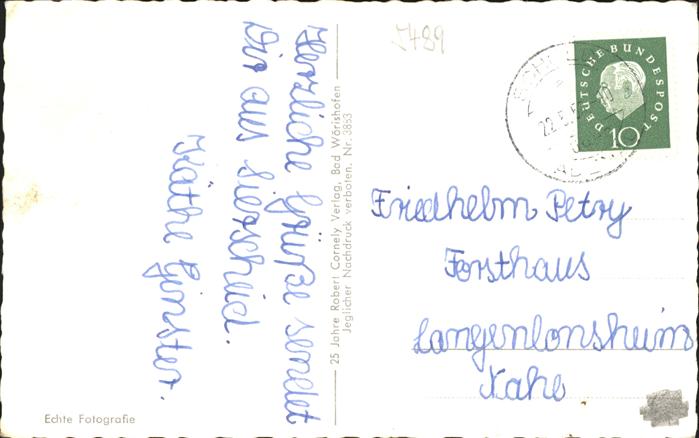 Herzliche Grüße sendet
Dir aus Lierscheid.
Käthe Ginster.
25 Jahre Robert Cornely Verlag, Bad Wörishofen
Jeglicher Nachdruck verboten, Nr. 3853
Echte Fotografie
5489
DEUTSCHE BUNDESPOST
10
Friedhelm Petry
Forsthaus
Langenlonsheim
Nahe